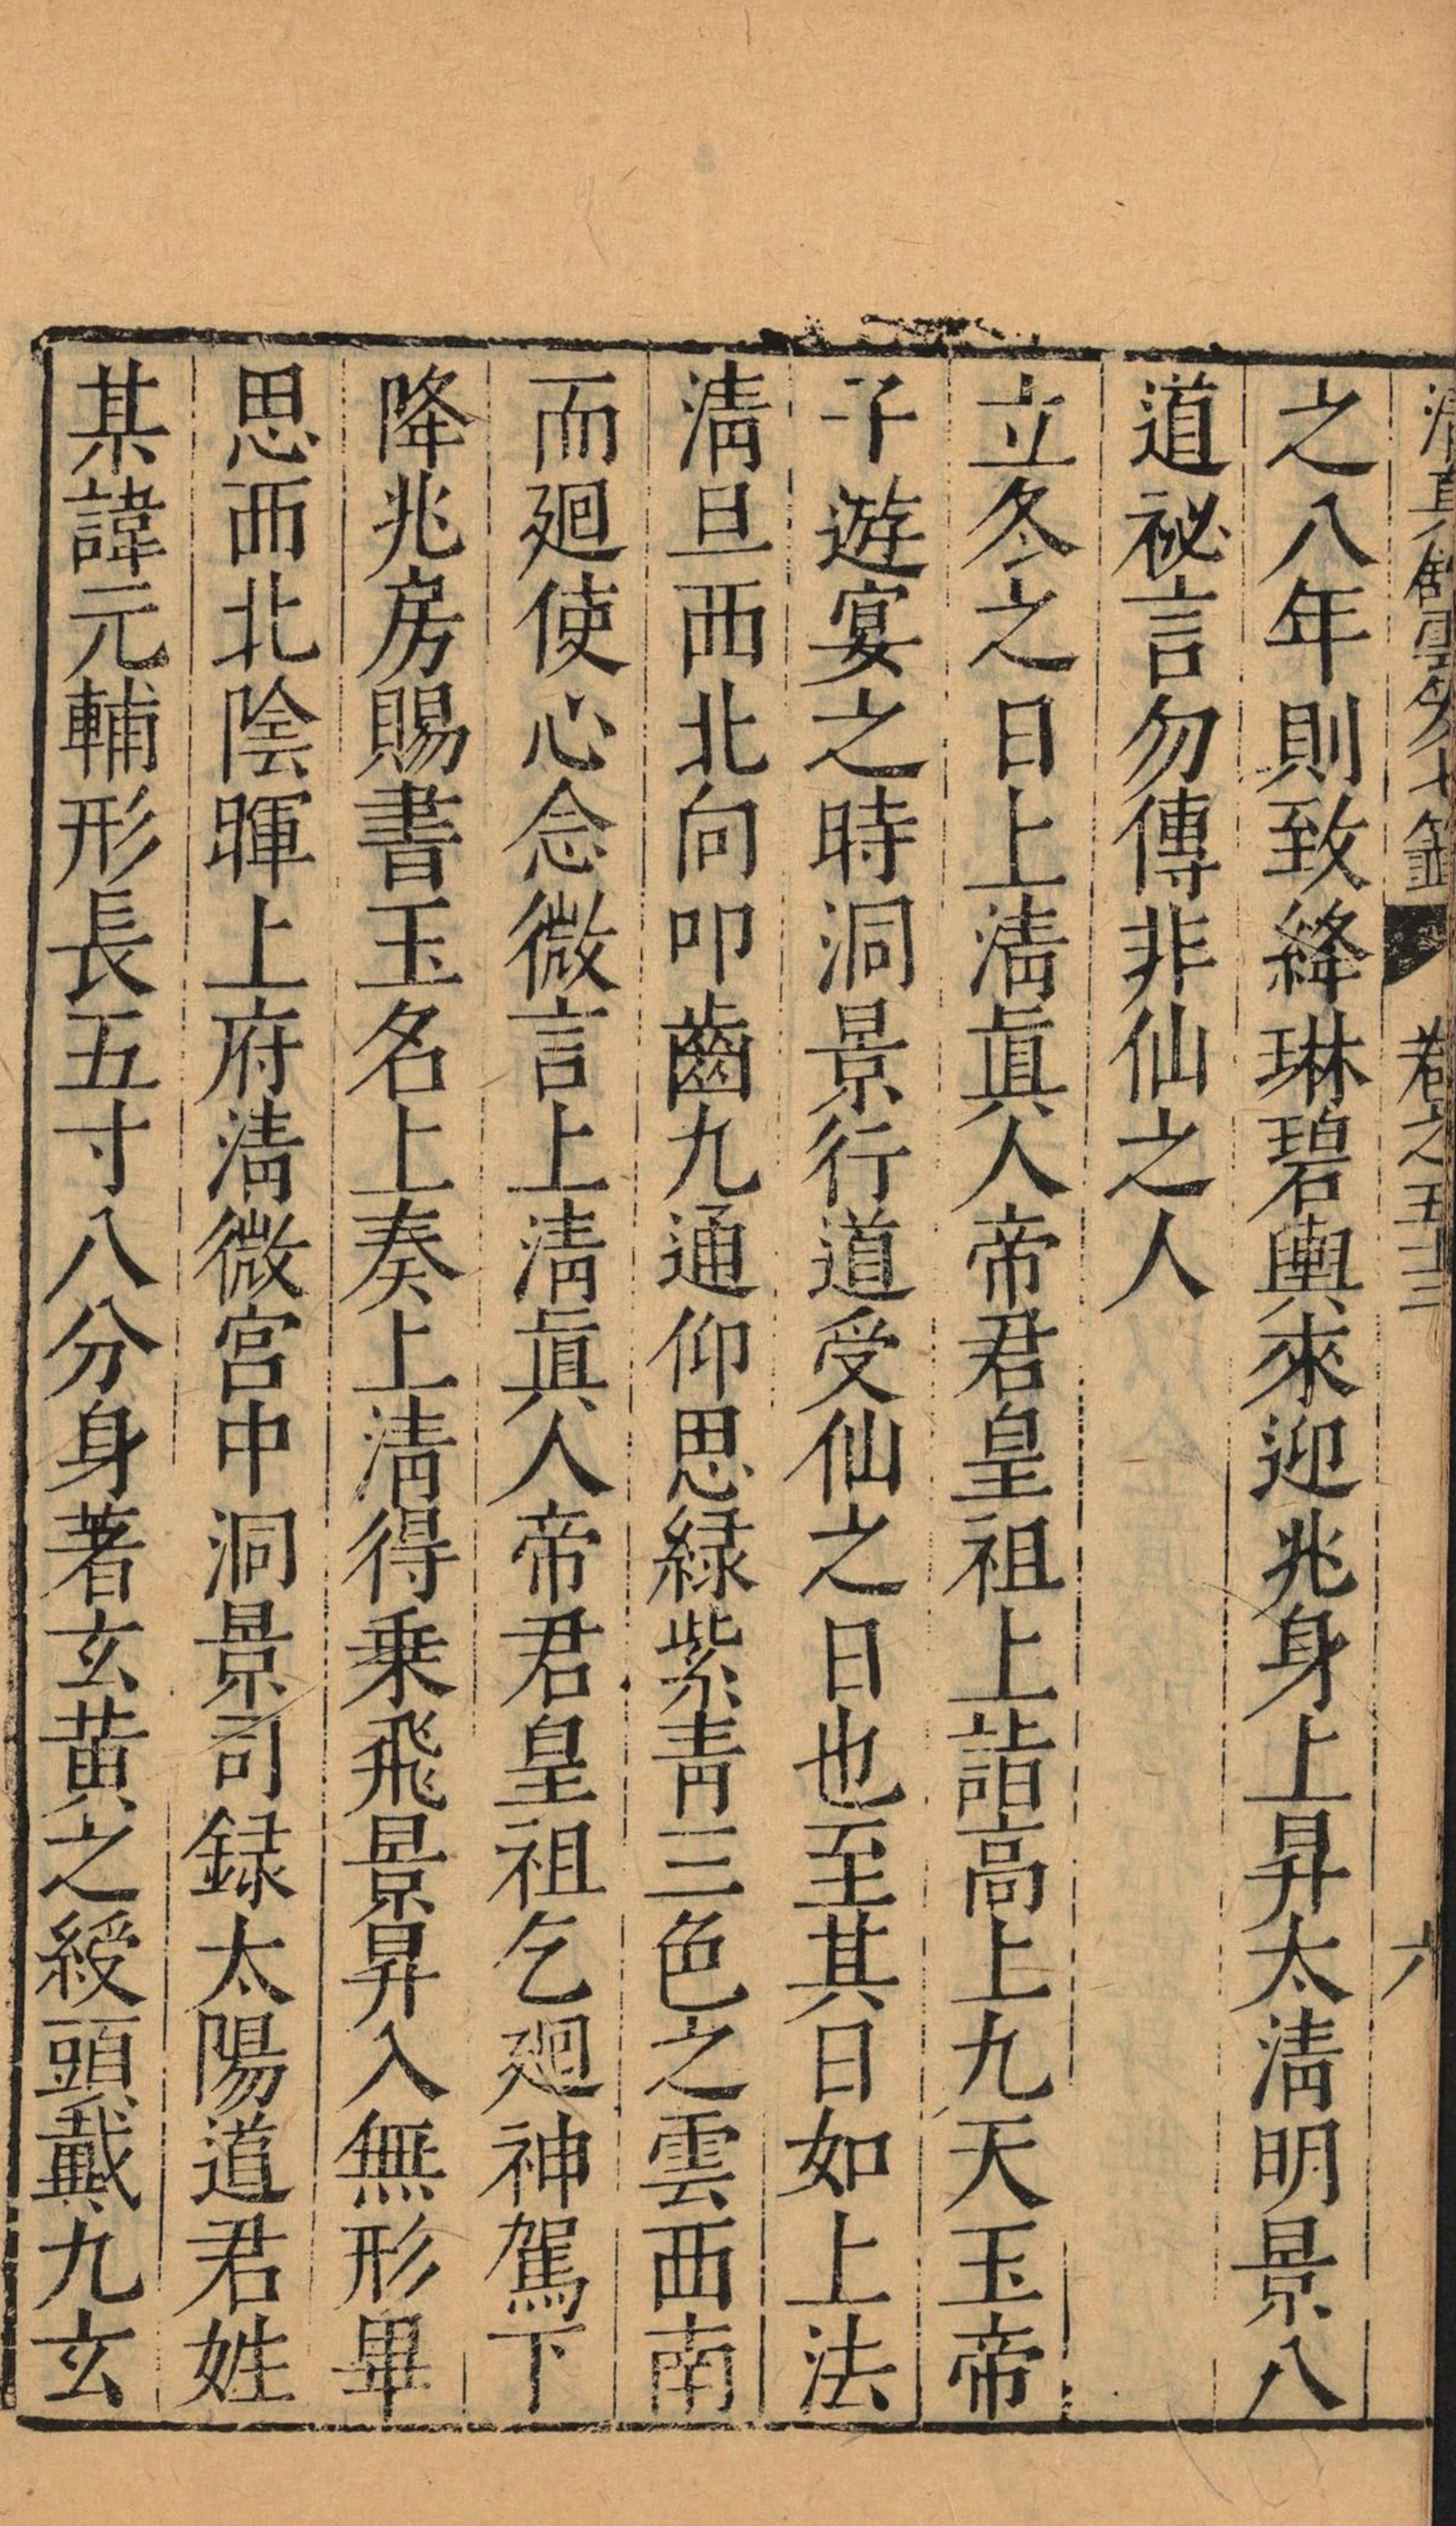 清真館雲笈七籤 卷之五十三 六
之八年則致絳琳碧輿來迎兆身上昇太淸明景八
道祕言勿傳非仙之人
立冬之日上淸眞人帝君皇祖上詣高上九天玉帝
子遊宴之時洞景行道受仙之日也至其日如上法
淸旦西北向叩齒九通仰思緑紫靑三色之雲西南
而廻使心念微言上淸眞人帝君皇祖乞廻神駕下
降兆房賜書玉名上奏上淸得乗飛景昇入無形畢
思西北陰暉上府淸微宮中洞景司録太陽道君姓
某諱元輔形長五寸八分身著玄黄之綬頭戴九玄